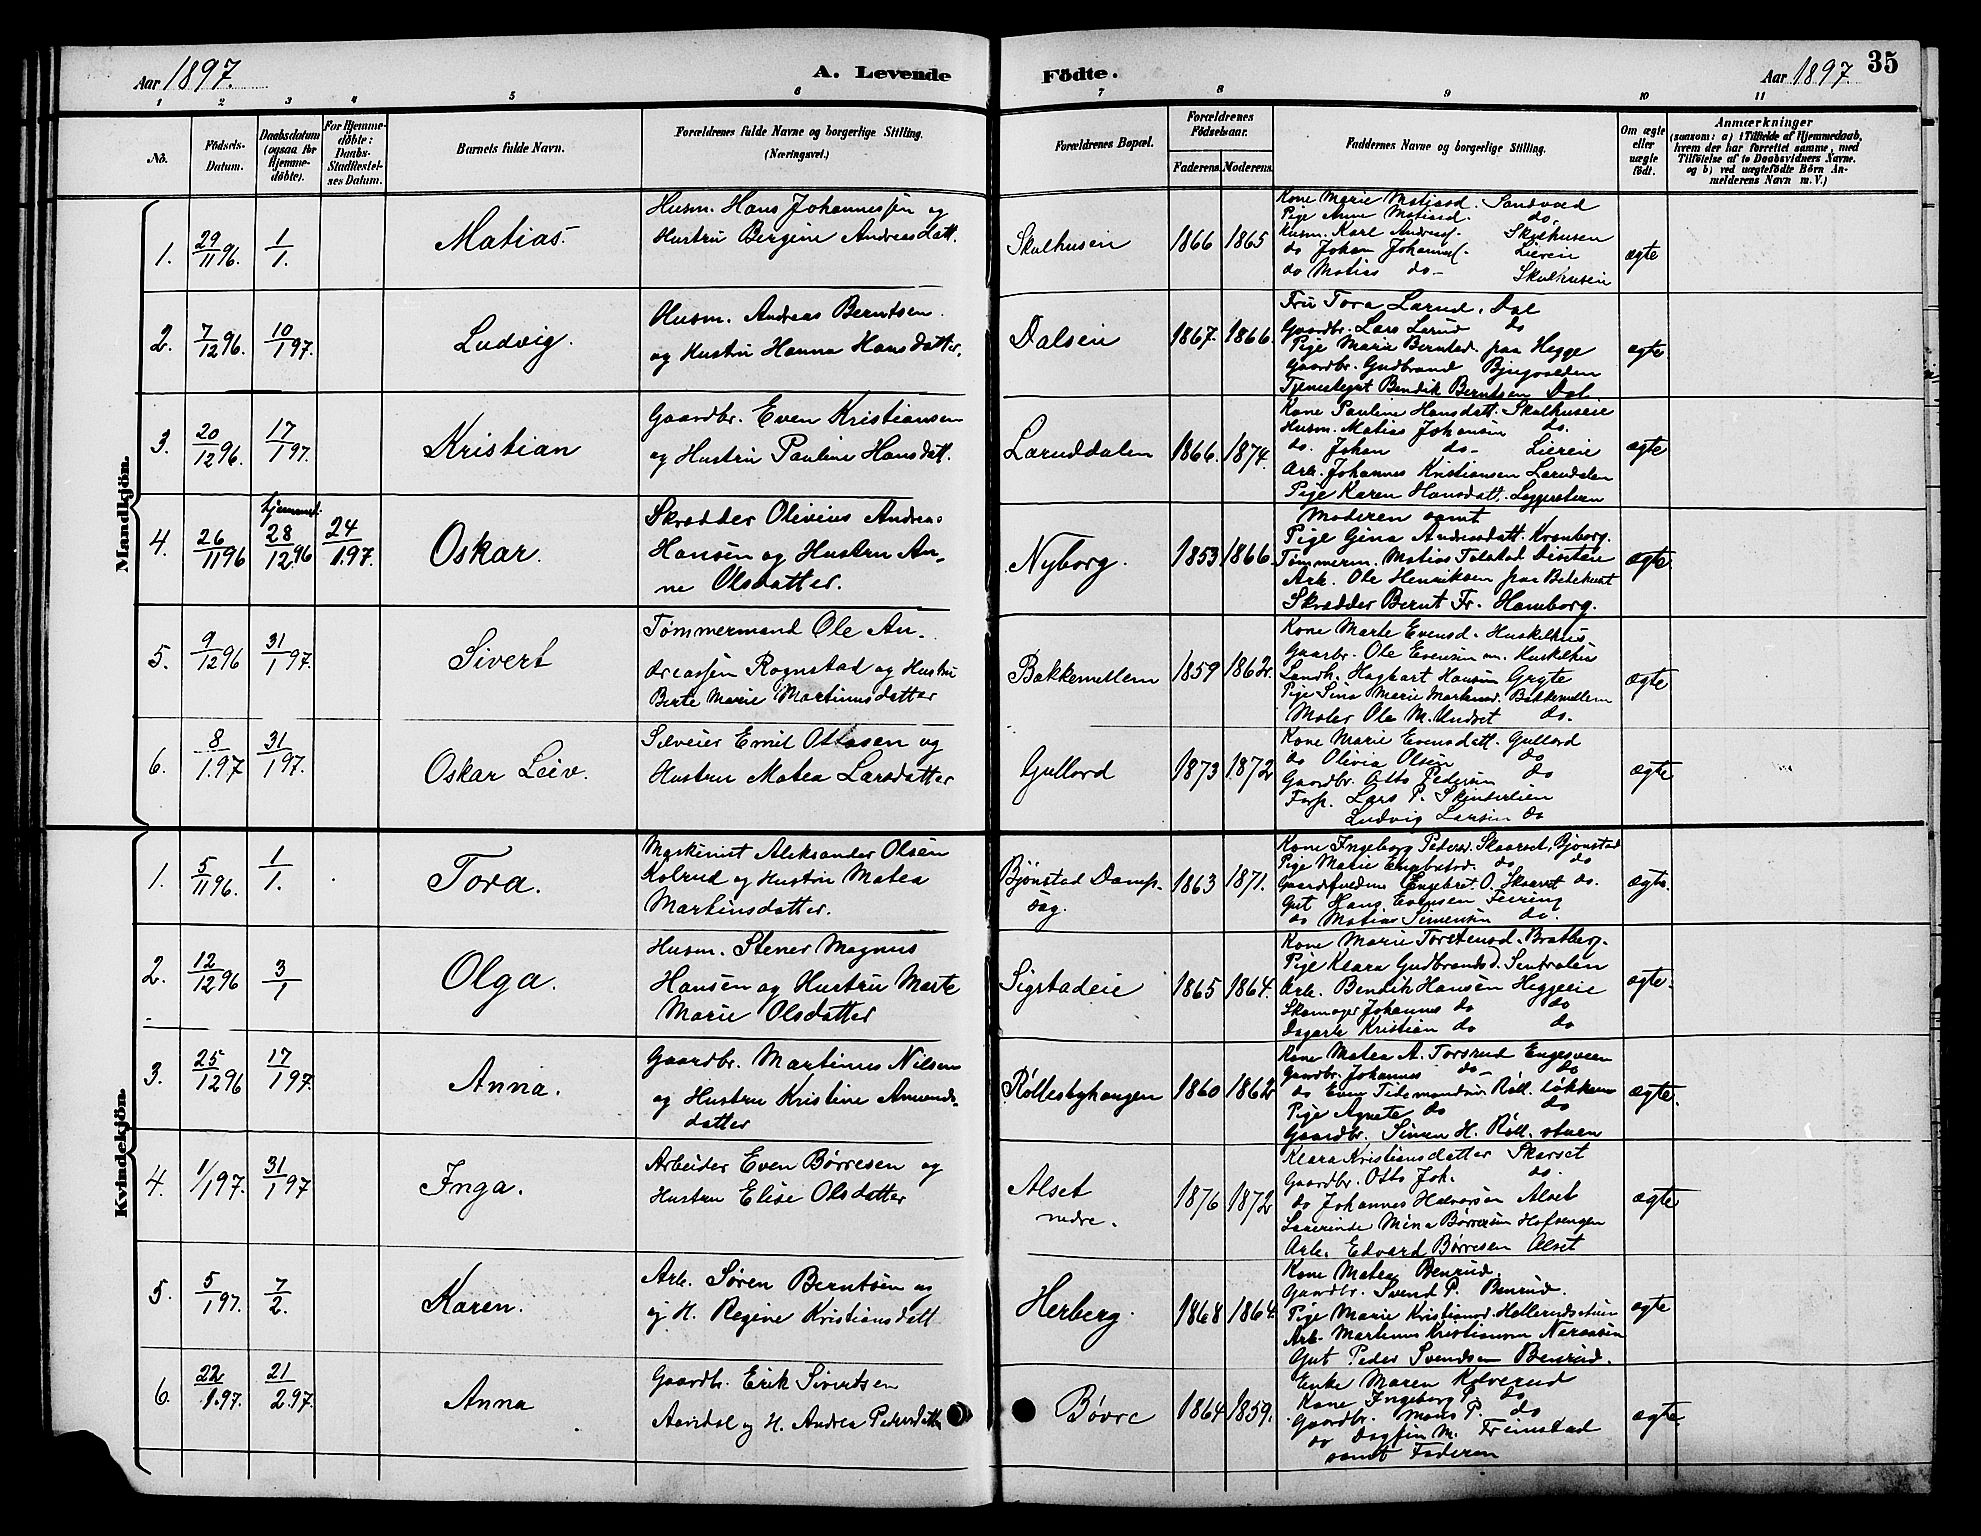 Aar 1897. A. Levende Födte. Aar 1897 35
1 2 3 4 5 6 7 8 9 10 11
No.
Födsels-Datum.
Daabsdatum (ogsaa for Hjemme-döbte).
For Hjemme-döbte: Daabs-Stadfestel-ses Datum.
Barnets fulde Navn.
Forældrenes fulde Navne og borgerlige Stilling. (Næringsvei.)
Forældrenes Bopæl.
Forældrenes Födselsaar.
Faderens. Moderens.
Faddernes Navne og borgerlige Stilling.
Om ægte eller uægte födt.
Anmærkninger
(saasom: a) i Tilfælde af Hjemmedaab,
hvem der har forrettet samme, med
Tilföielse af to Daabsvidners Navne.
og b) ved uægtefödte Börn An-
melderens Navn m. V.)
Mandkjön.
1. 29/11 96. 1/1. Matias.
Husm. Hans Johannessen og
Hustru Bergine Andreasdatt.
Skulhusein 1866 1865
Kone Marie Matiasd. Sandvold
Pige Anne Matiasd. do
Husm. Karl Andreas. Skulhusen
do Johan Johannes. Liereie
do Matias do- Skulhusein
ægte
2. 7/12 96. 10/1 97. Ludvig.
Husm. Andreas Berntsen.
og Hustru Hanna Hansdatter.
Dalsein 1867. 1866
Fru Tora Larud. Dal
Gaardbr. Lars Larud do
Pige Marie Berntsd. paa Hegge
Gaardbr. Gudbrand
Tjenestegut Bendik Berntsen Dal
ægte
3. 20/12 96. 17/1 97. Kristian
Gaardbr. Even Kristiansen
og Hustru Pauline Hansdatt.
Laruddalen 1866. 1874.
Kone Pauline Hansdatt. Skulhuseie
Husm. Matias Johansen do.
do. Johan do- Liereie
Arb. Johannes Kristiansen Larudalen
Pige Karen Hansdatt.
ægte
4. 26/11 96 hjemmed. 28/12 96 24/1 97. Oskar.
Skrædder Olivius Andreas
Hansen og Hustru An-
ne Olsdatter.
Nyborg. 1853 1866
Moderen samt
Pige Gina Andreasdatt. Kronborg.
Tømmerm. Matias Tolstad
Arb. Ole Henriksen paa Bedehuset
Skrædder Bernt Fr. Hamborg.
ægte
5. 9/12 96 31/1 97. Sivert
Tømmermand Ole An-
dreassen Rognstad og Hustru
Berte Marie Martinusdatter
Bakkemellem 1859 1862
Kone Marte Evensd. Huskelhus
Gaarbr. Ole Evensen m. Huskelhus
Landh. Hagbart Hansen Gryte
Pige Sina Marie Martinusd. Bakkemellem
Maler Ole M. Undset do.
ægte
6. 8/1 97 31/1 97. Oskar Leiv.
Sveiser Emil Ottosen og
Hustru Matea Larsdatter
Gullord 1873 1872
Kone Marie Evensdatt. Gullord
do Olivia Olsen do
Gaardbr. Otto Pedersen do
Forp. Lars P. Skinderlien
Ludvig Larsen do
ægte
Kvindekjön.
1. 5/11 96. 1/1. Tora.
Maskinist Aleksander Olsen
Kolrud og Hustru Matea
Martinsdatter.
Bjønstad Damp-
sag. 1863 1871.
Kone Ingeborg Pedersd. Skaarset, Bjønstad
Pige Matie Engebretsd. do do
Engebret O. Skaaret do.
Gut Hans Evensen Feiring
do Matias Simensen do.
ægte.
2. 12/12 96 3/1 Olga.
Husm. Stener Magnus
Hansen og Hustru Marte
Marie Olsdatter
Sigstadeie 1865 1864.
Kone Marie Torstensd. Bratberg.
Pige Klara Gudbrandsd.
Arb. Bendik Hansen Heggeeie
Skomager Johannes do do
Dagarb. Kristian do do
ægte.
3. 25/12 96 17/1 97. Anna.
Gaardbr. Martinus Nilsen
og Hustru Kristine Amunds-
datter
Røllesbyhaugen 1860 1862
Kone Matea A. Torsrud Engesveen
Gaardbr. Johannes do- do
do Even Tidemandsen Røll. løkken
Pige Agnete do do
Gaardbr. Simen H. Røll. stuen
ægte.
4. 1/1 97. 31/1 97 Inga.
Arbeider Even Børresen og
Hustru Elise Olsdatter
Alset
nedre. 1876 1872
Klara Kristiansdatter Skarset
Gaardbr. Otto Joh. do.
do Johannes Halvorsen Alset
Lærerinde Mina Børresen Hofsengen
Arb. Edvard Børresen Alset
ægte
5. 5/1 97. 7/2. Karen.
Arb. Søren Berntsen og
og H. Regine Kristiansdatt
Herberg. 1868 1864
Kone Matea Benrud.
Gaardbr. Svend P. Benrud.
Pige Marie Kristiansd.
Arb. Martinus Kristiansen
Gut Peder Svendsen Benrud.
ægte
6. 22/1 97. 21/2 97. Anna
Gaardb. Erik Sivertsen
Aandal og H. Andrea Pedersdatt
Bøvre 1864 1859.
Enke Maren Kolverud
Kone Ingeborg P. do
Gaardbr. Mons P. do
do Dagfin M. Freinstad
samt Faderen
ægte.